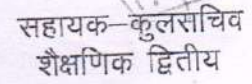 सहायक–कुलसचिव
शैक्षणिक द्वितीय